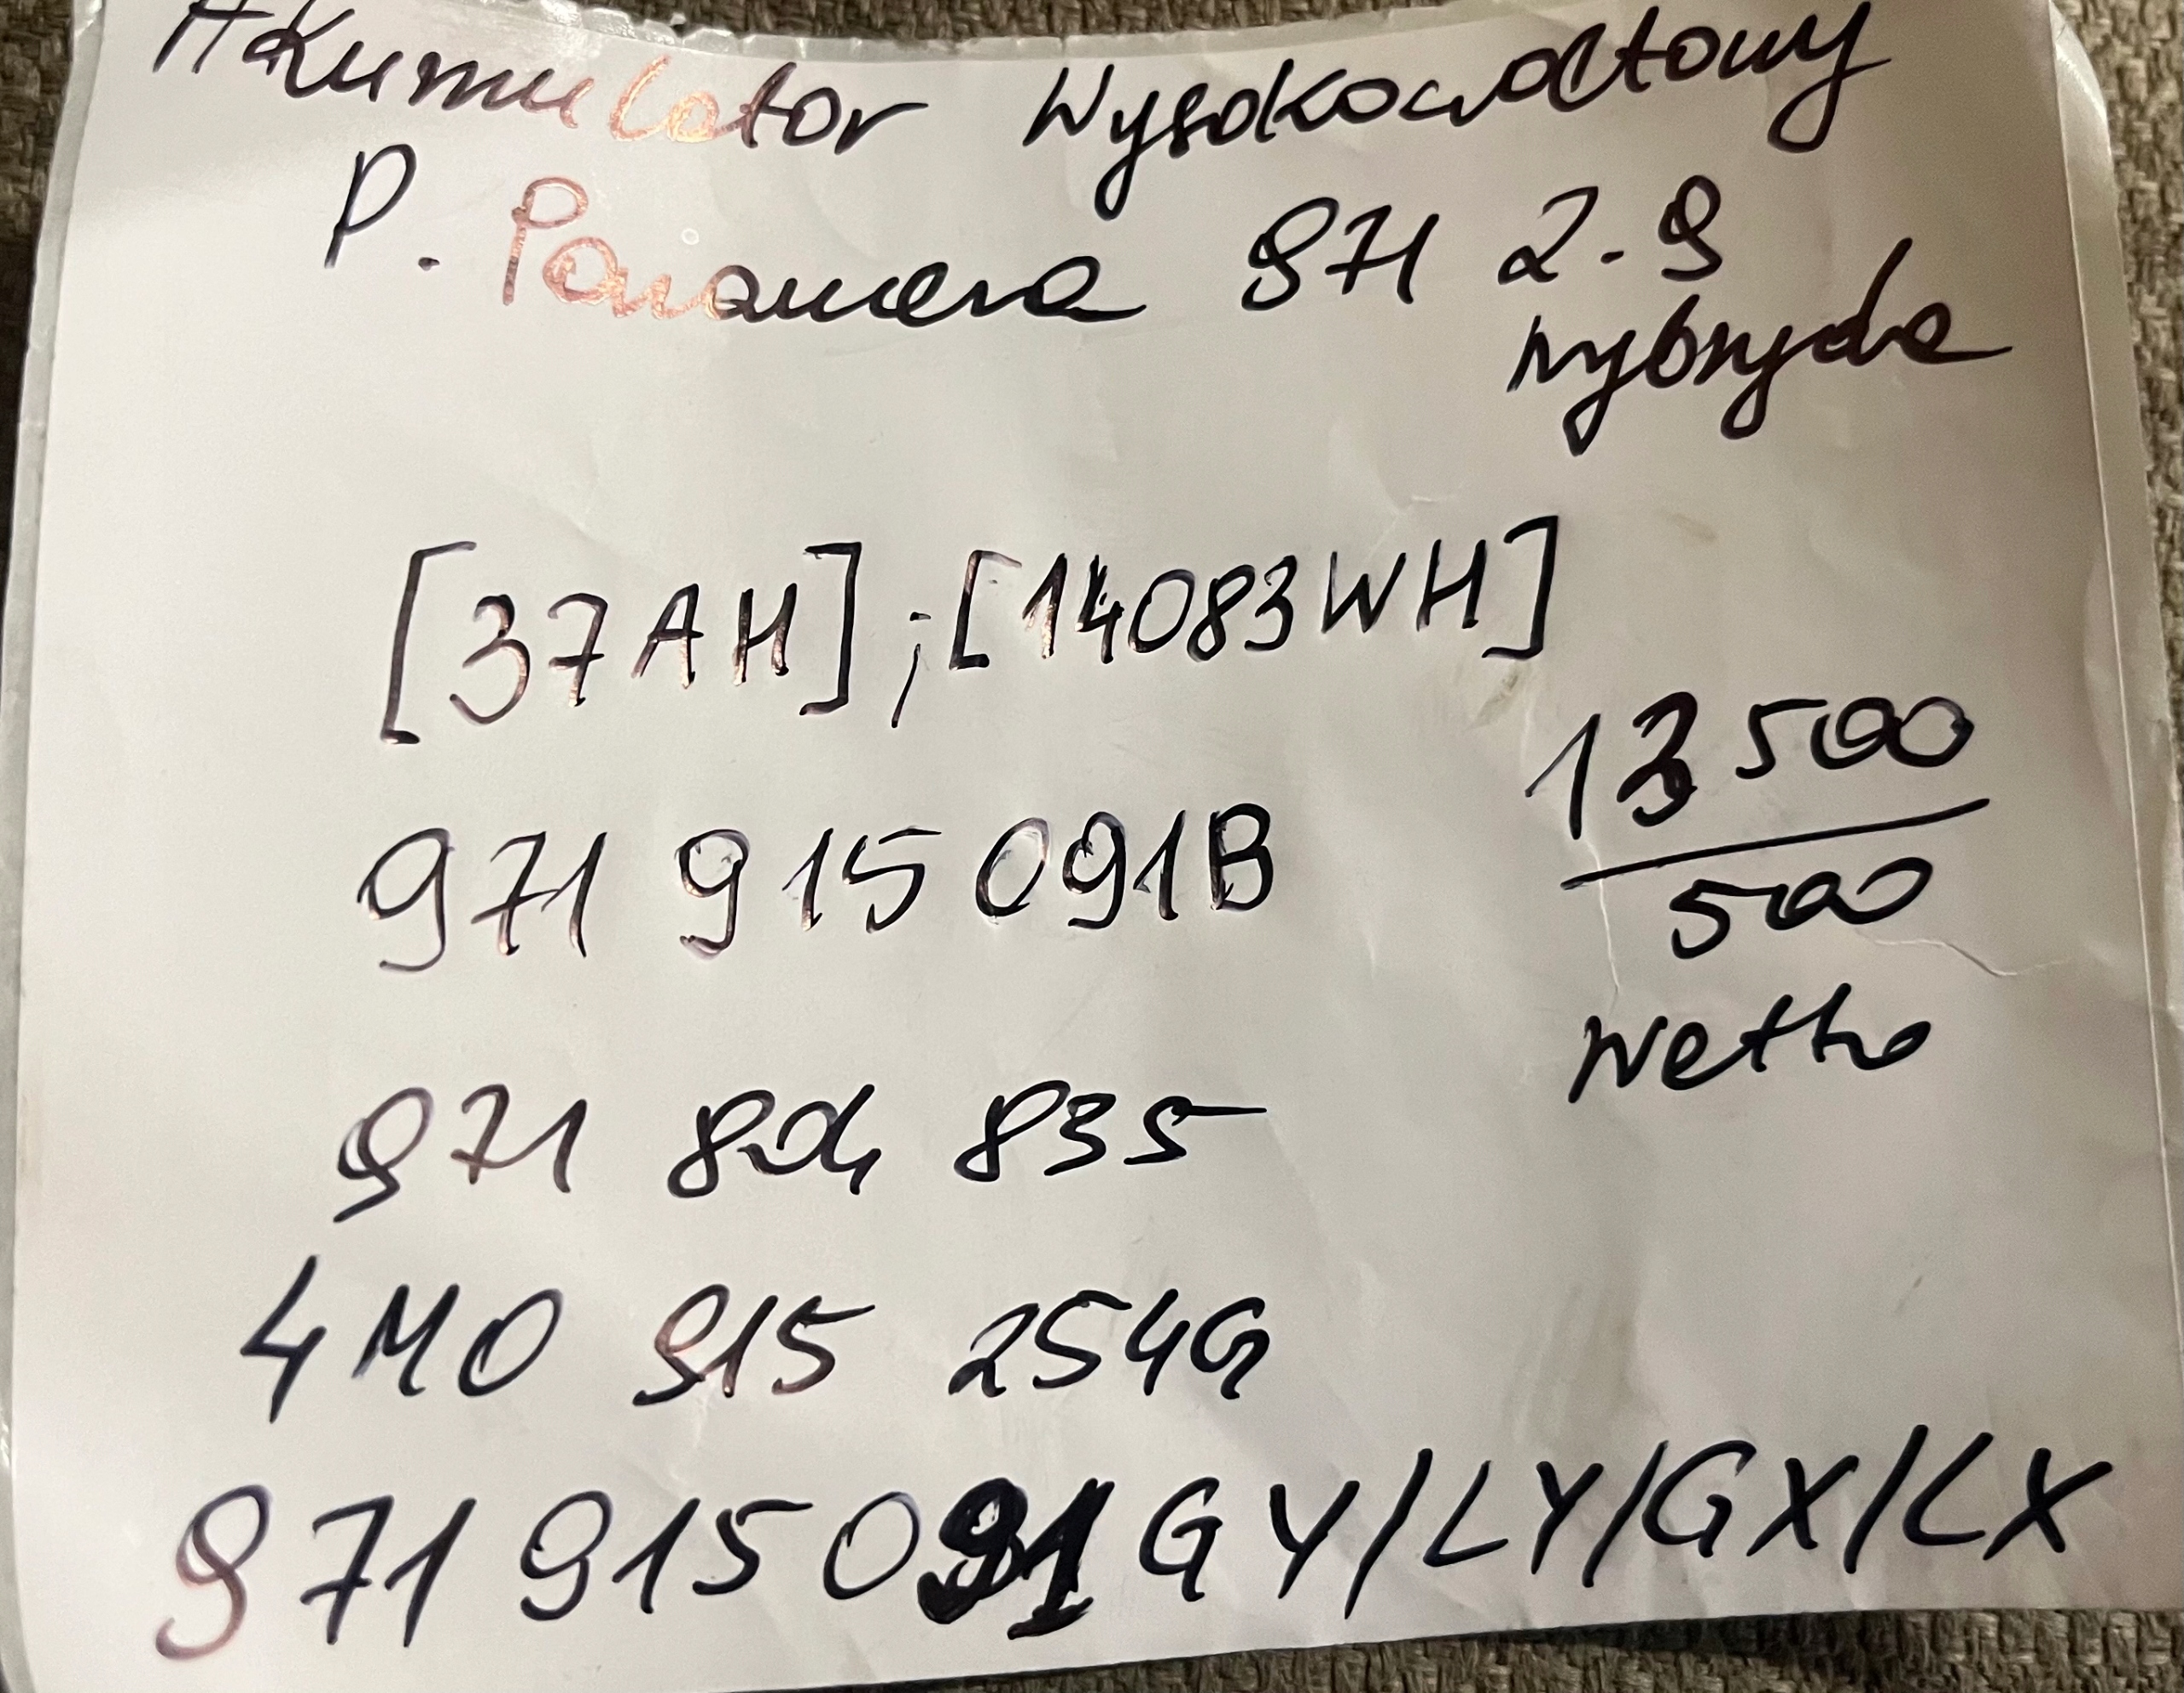 Akumulator Wysokowoltowy
P. Panamera 971 2.9
hybryda
[37AH];[14083WH]
13 500
971 915 091B
500
Netto
971 804 835
4M0 915 254G
971 915 091 GY/LY/GX/LX